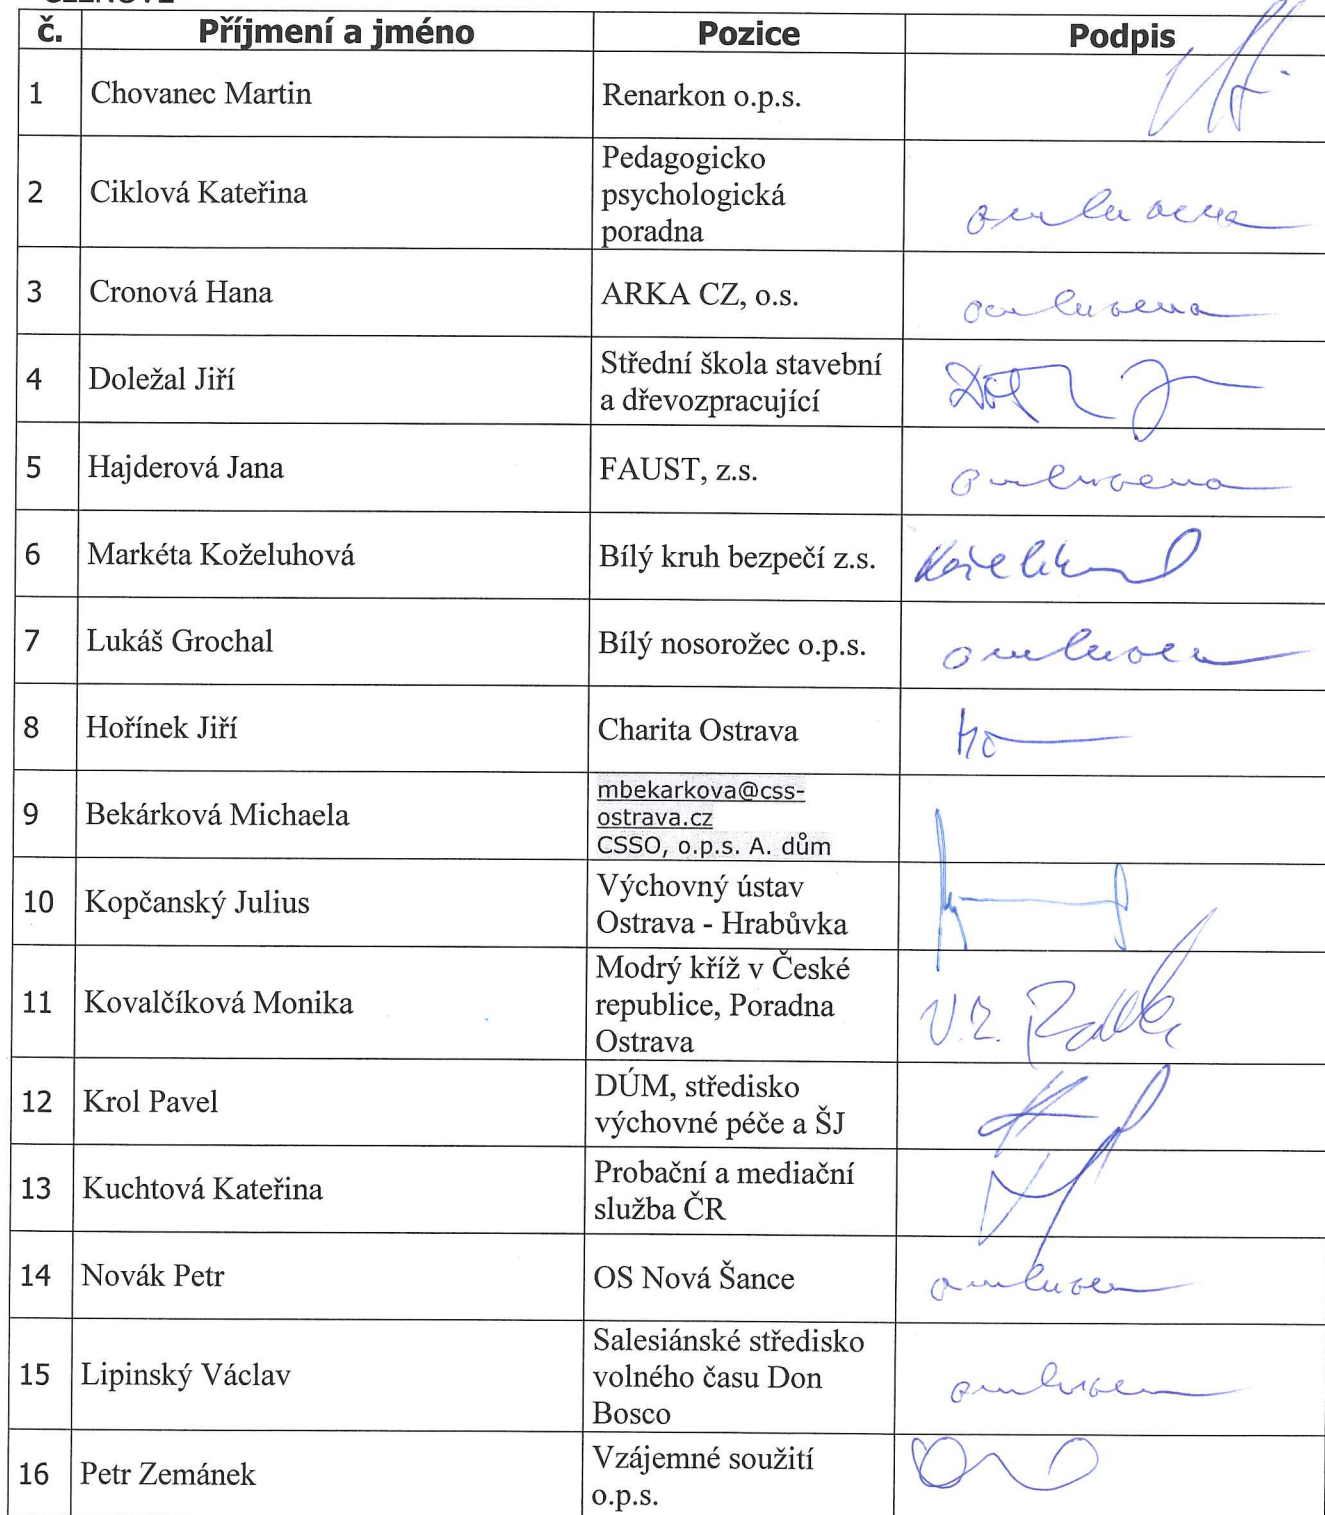 č. Příjmení a jméno Pozice Podpis
1 Chovanec Martin Renarkon o.p.s.
2 Ciklová Kateřina Pedagogicko
psychologická
poradna omluvena
3 Cronová Hana ARKA CZ, o.s. omluvena
4 Doležal Jiří Střední škola stavební
a dřevozpracující
5 Hajderová Jana FAUST, z.s. omluvena
6 Markéta Koželuhová Bílý kruh bezpečí z.s.
7 Lukáš Grochal Bílý nosorožec o.p.s. omluven
8 Hořínek Jiří Charita Ostrava
9 Bekárková Michaela mbekarkova@css-
ostrava.cz
CSSO, o.p.s. A. dům
10 Kopčanský Julius Výchovný ústav
Ostrava - Hrabůvka
11 Kovalčíková Monika Modrý kříž v České
republice, Poradna
Ostrava
12 Krol Pavel DÚM, středisko
výchovné péče a ŠJ
13 Kuchtová Kateřina Probační a mediační
služba ČR
14 Novák Petr OS Nová Šance omluven
15 Lipinský Václav Salesiánské středisko
volného času Don
Bosco omluven
16 Petr Zemánek Vzájemné soužití
o.p.s.